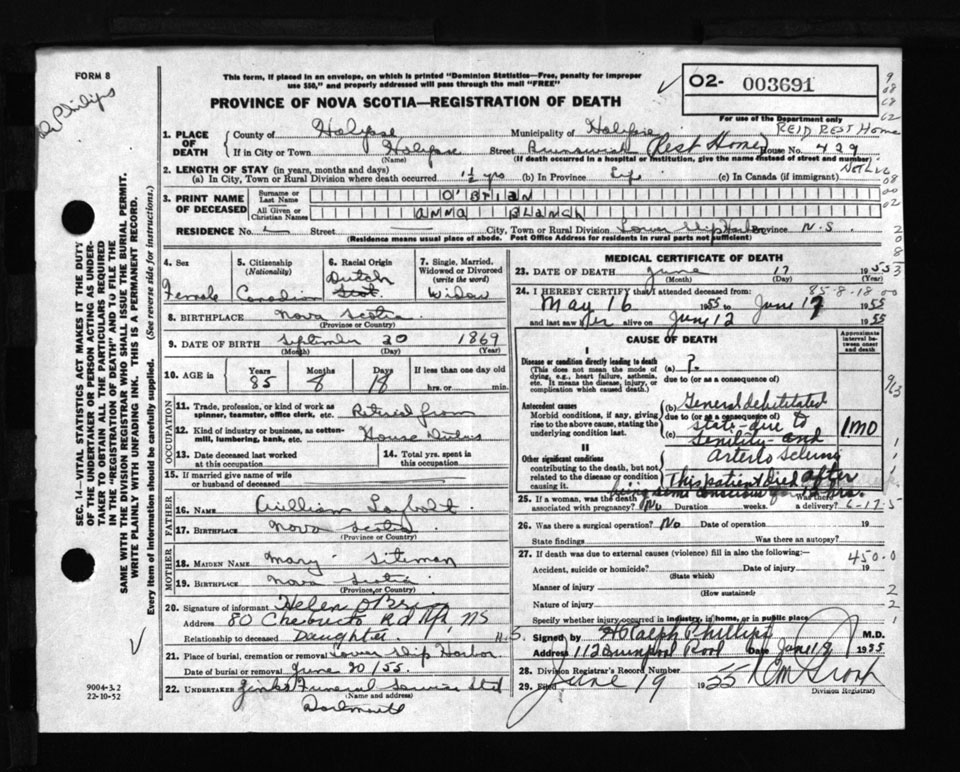 FORM 8
This form, if placed in an envelope, on which is printed "Dominion Statistics—Free, penalty for improper
use $50," and properly addressed will pass through the mail "FREE"
PROVINCE OF NOVA SCOTIA—REGISTRATION OF DEATH
02- 003691
For use of the Department only
REID REST Home
1. PLACE OF DEATH
County of Halifax Municipality of Halifax
If in City or Town Halifax Street Brunswick (Rest Home) House No. 429
(Name) (If death occurred in a hospital or institution, give the name instead of street and number)
2. LENGTH OF STAY (in years, months and days)
(a) In City, Town or Rural Division where death occurred 1½ yrs (b) In Province Life (c) In Canada (if immigrant)
3. PRINT NAME OF DECEASED
Surname or Last Name O'BRIAN
All Given or Christian Names ANNA BLANCH
RESIDENCE No. Street City, Town or Rural Division Lower Ship Harbor Province N.S.
(Residence means usual place of abode. Post Office Address for residents in rural parts not sufficient)
SEC. 14—VITAL STATISTICS ACT MAKES IT THE DUTY
OF THE UNDERTAKER OR PERSON ACTING AS UNDER-
TAKER TO OBTAIN ALL THE PARTICULARS REQUIRED
IN THE "REGISTRATION OF DEATH" AND TO FILE THE
SAME WITH THE DIVISION REGISTRAR WHO SHALL ISSUE THE BURIAL PERMIT.
WRITE PLAINLY WITH UNFADING INK. THIS IS A PERMANENT RECORD.
Every item of information should be carefully supplied. (See reverse side for instructions.)
4. Sex Female
5. Citizenship (Nationality) Canadian
6. Racial Origin Dutch Scot.
7. Single, Married, Widowed or Divorced (write the word) Widow
8. BIRTHPLACE Nova Scotia
(Province or Country)
9. DATE OF BIRTH September 30 1869
(Month) (Day) (Year)
10. AGE in Years 85 Months 8 Days 18 If less than one day old hrs. or min.
OCCUPATION
11. Trade, profession, or kind of work as spinner, teamster, office clerk, etc. Retired from
12. Kind of industry or business, as cotton-mill, lumbering, bank, etc. House Duties
13. Date deceased last worked at this occupation
14. Total yrs. spent in this occupation
15. If married give name of wife or husband of deceased
FATHER
16. Name William
17. Birthplace Nova Scotia
(Province or Country)
MOTHER
18. Maiden Name Mary Siteman
19. Birthplace Nova Scotia
(Province or Country)
20. Signature of informant Helen O'Brien
Address 80 Chebucto Rd Hfx, NS
Relationship to deceased Daughter
21. Place of burial, cremation or removal Lower Ship Harbor
Date of burial or removal June 20/55
22. UNDERTAKER Funeral Service
(Name and address)
Dartmouth
9004-3.2
22-10-52
MEDICAL CERTIFICATE OF DEATH
23. DATE OF DEATH June 17 1955
(Month) (Day)
85-8-18
24. I HEREBY CERTIFY that I attended deceased from:
May 16 1955 to June 17 1955
and last saw her alive on June 12 1955
CAUSE OF DEATH
Approximate interval between onset and death
I
Disease or condition directly leading to death
(This does not mean the mode of dying, e.g., heart failure, asthenia, etc. It means the disease, injury, or complication which caused death.)
(a) ?
due to (or as a consequence of)
Antecedent causes
Morbid conditions, if any, giving rise to the above cause, stating the underlying condition last.
(b) General debilitated
due to (or as a consequence of)
state-due to
(c) Senility- and
1 mo
II
Other significant conditions
contributing to the death, but not related to the disease or condition causing it.
This patient died after
being semi conscious
25. If a woman, was the death associated with pregnancy? No Duration weeks. Was there a delivery?
6-17-5
26. Was there a surgical operation? No Date of operation 19
State findings Was there an autopsy?
27. If death was due to external causes (violence) fill in also the following:—
450-0
Accident, suicide or homicide? Date of injury 19
(State which)
Manner of injury
(How sustained)
Nature of injury
Specify whether injury occurred in industry, in home, or in public place
Signed by H Ralph Phillips M.D.
Address 112 Quinpool Road Date June 19 1955
28. Division Registrar's Record Number
29. Filed June 19 1955
Division Registrar)